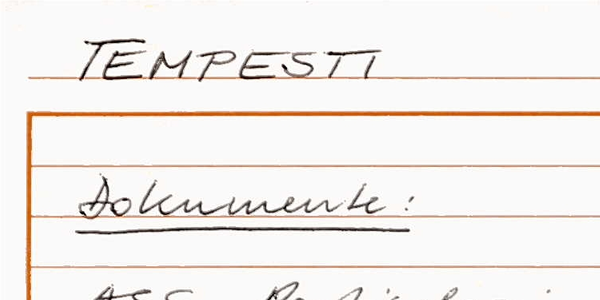 TEMPESTI
Dokumente: